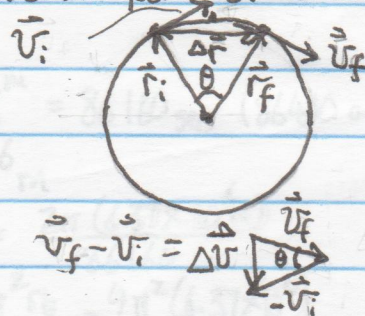 v⃗ᵢ
Δr⃗
v⃗f
r⃗ᵢ θ r⃗f
v⃗f - v⃗ᵢ = Δv⃗
v⃗f
θ
-v⃗ᵢ